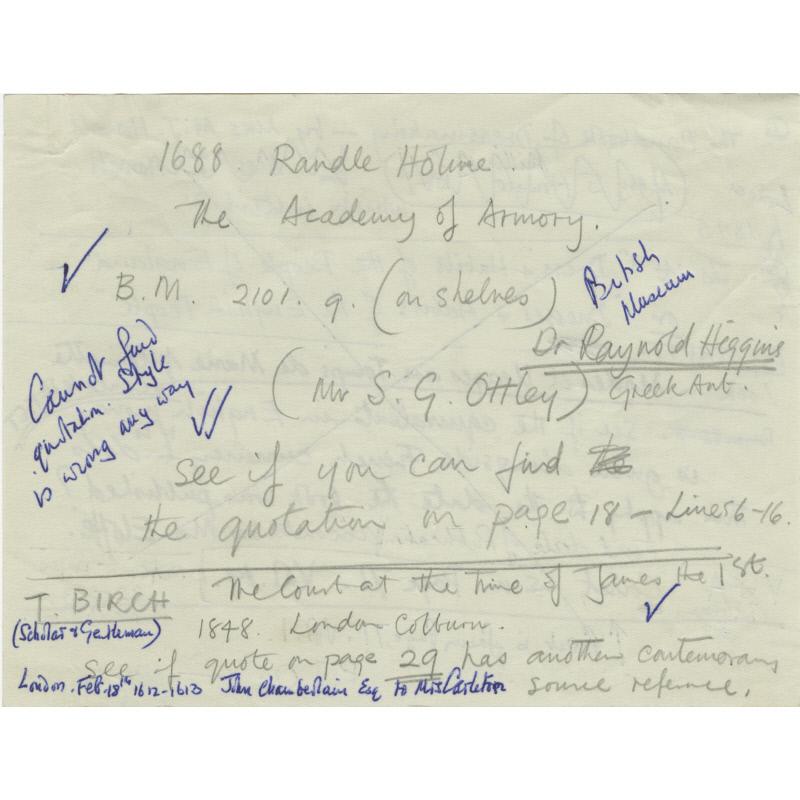 1688. Randle Holme.
The Academy of Armory.
B.M. 2101. q. (on shelves)
British
Museum
Dr Raynold Higgins
(Mr S. G. Ottley) Greek Ant.
Cannot find
quotation. Style
is wrong any way
see if you can find
the quotation on page 18 – Lines 6-16.
T. BIRCH The Court at the time of James the 1st.
(Scholar & Gentleman) 1848. London Colburn.
see if quote on page 29 has another contemorary
London. Feb. 18th 1612-1613 John Chamberlain Esq to Mis Carleton source reference.